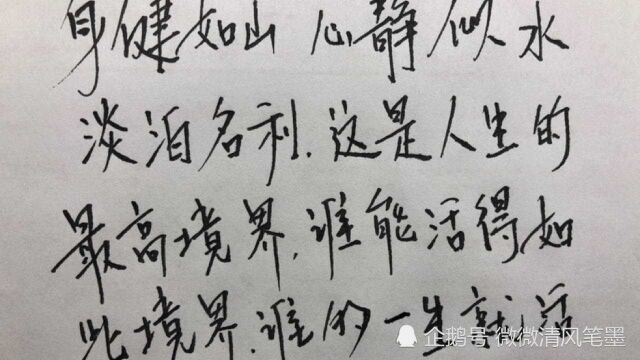 身健如山 心静似水
淡泊名利,这是人生的
最高境界,谁能活得如
此境界,谁的一生就活
企鹅号 微微清风笔墨